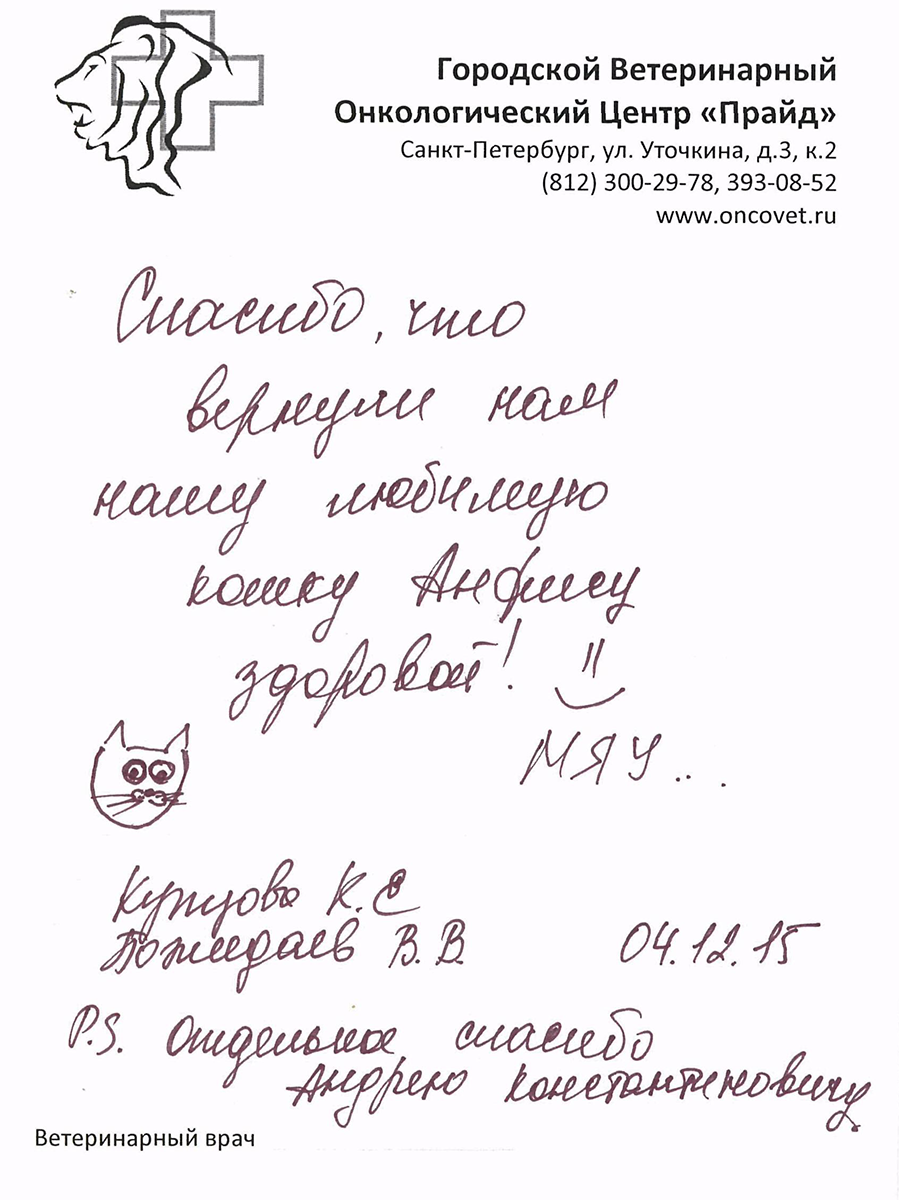 Городской Ветеринарный
Онкологический Центр «Прайд»
Санкт-Петербург, ул. Уточкина, д.3, к.2
(812) 300-29-78, 393-08-52
www.oncovet.ru
Спасибо, что
вернули нам
нашу любимую
кошку Анфису
здоровой! =)
МЯУ...
Купцова К.С
Пожидаев В.В.
04.12.15
P.S. Отдельное спасибо
Андрею Константиновичу
Ветеринарный врач